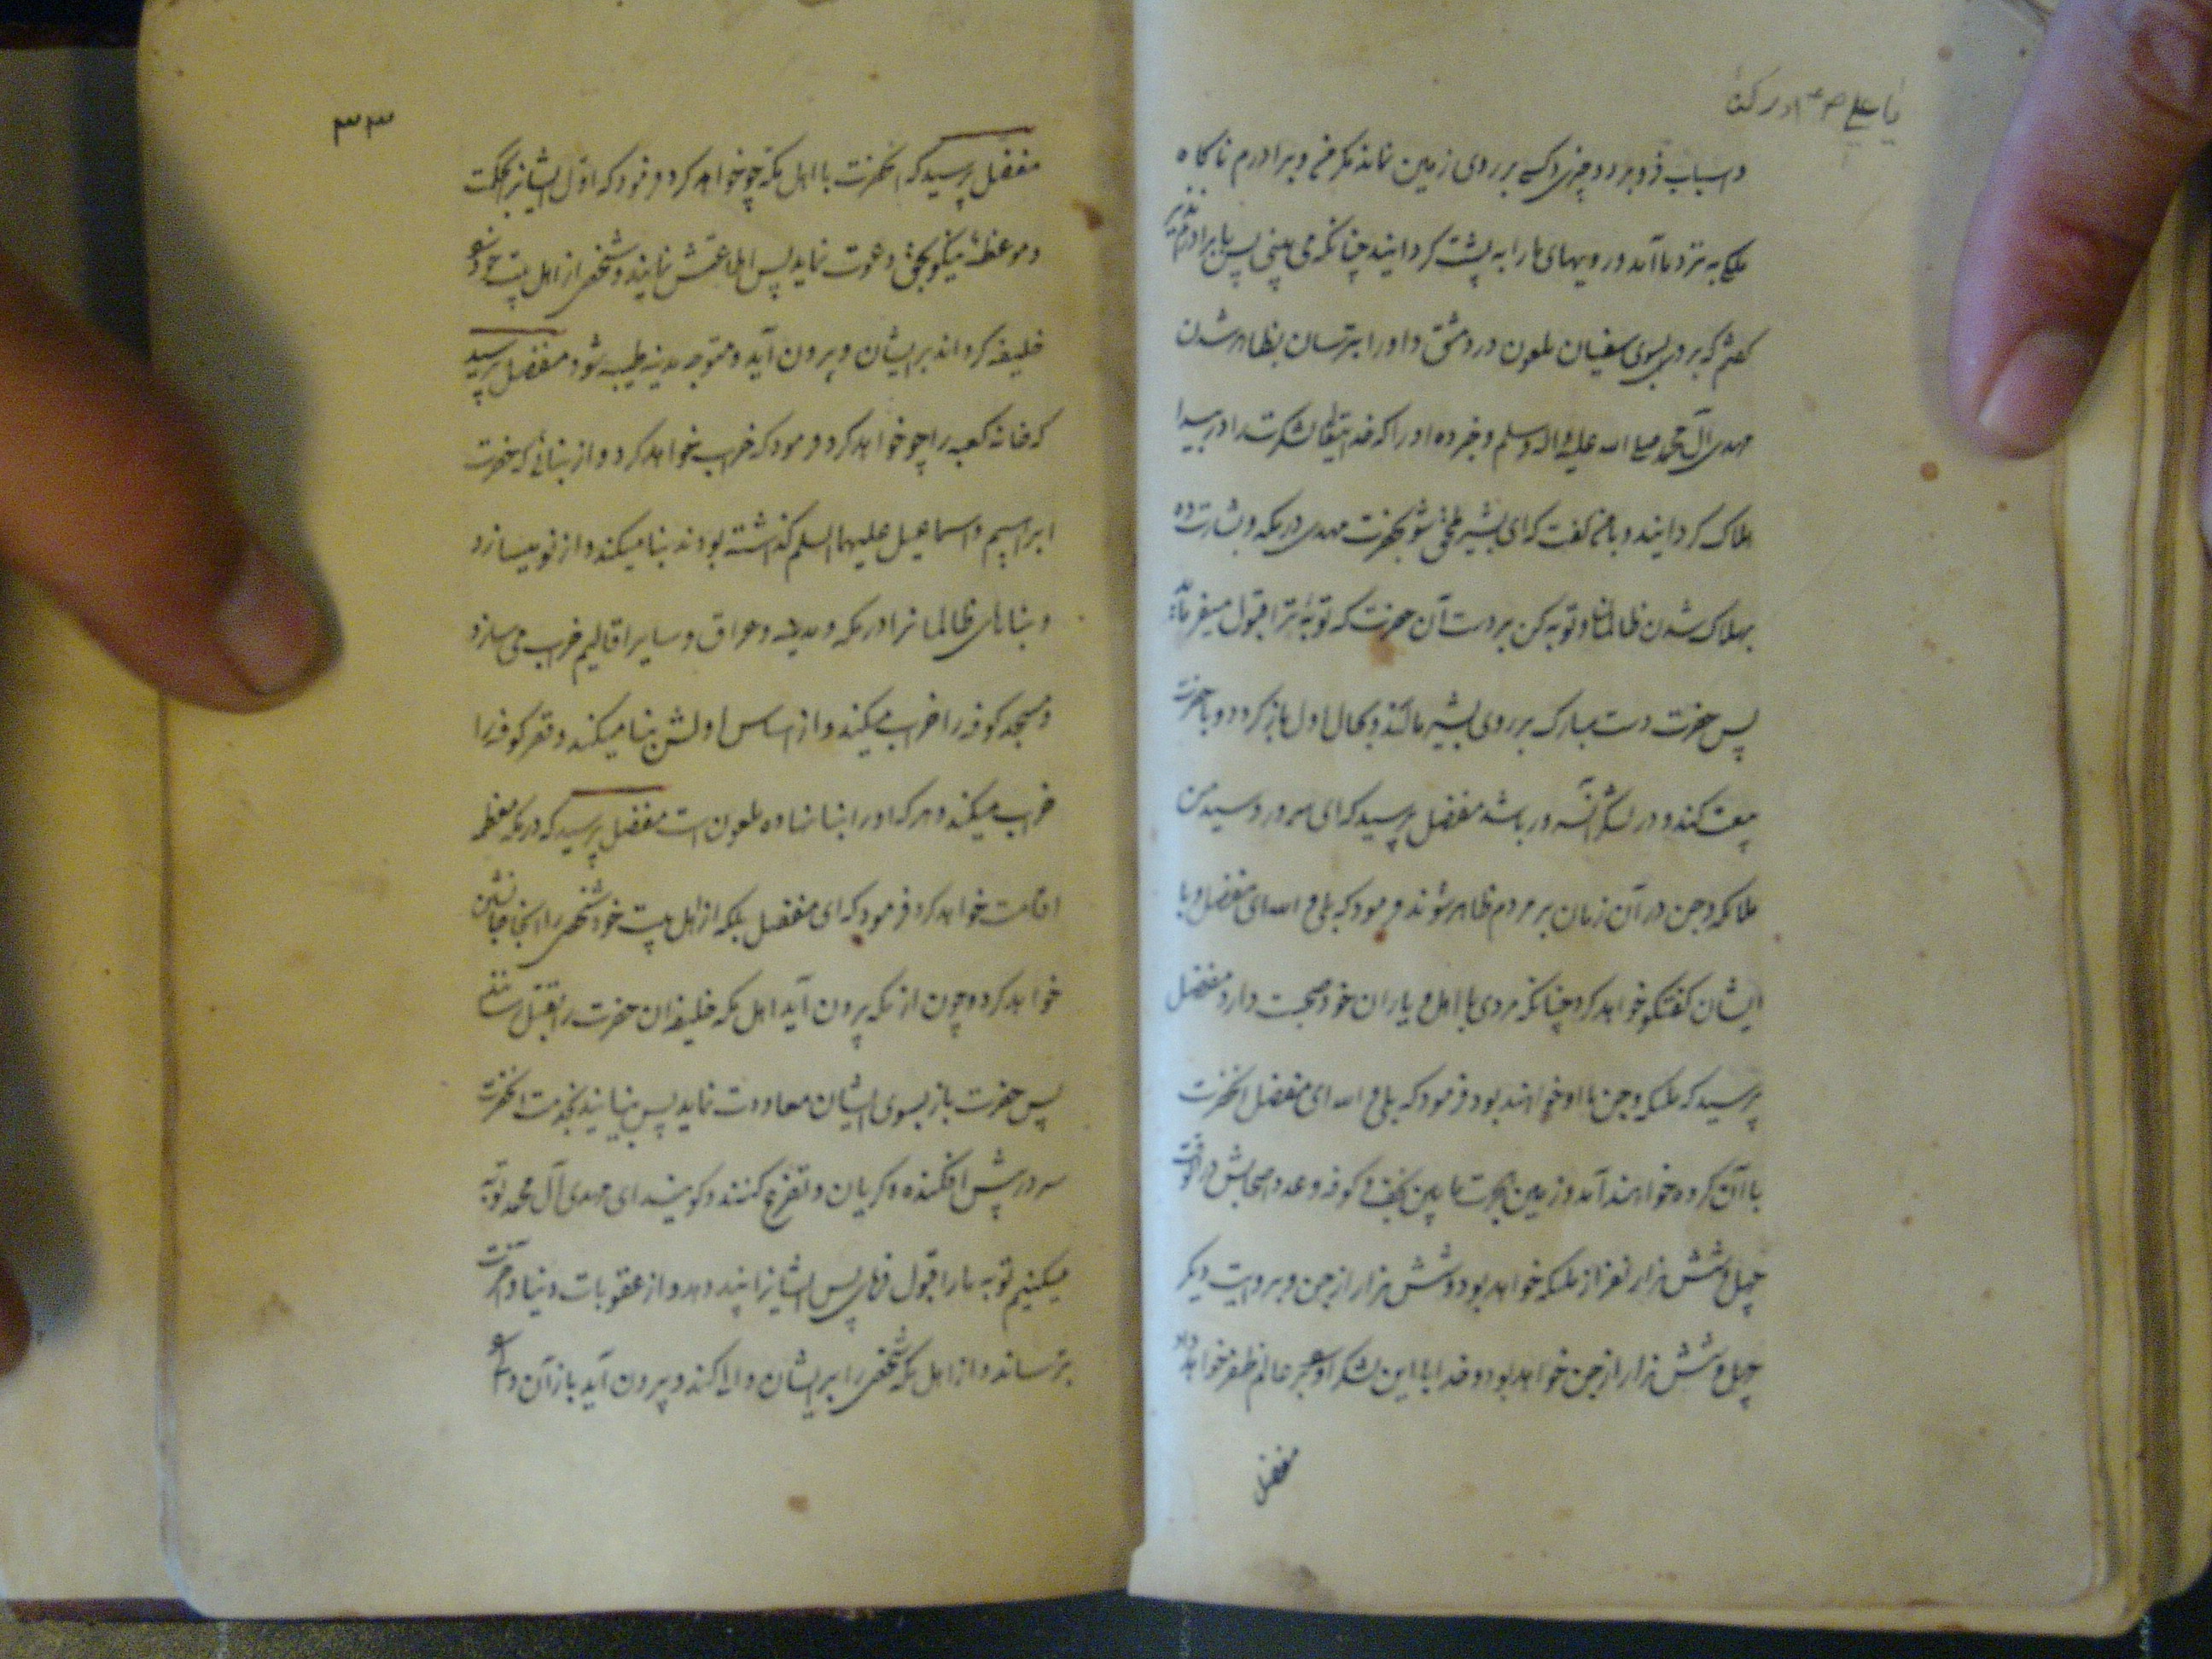 یا علی ادرکنی
و اسباب فرو برد و چیزی و کسی بر روی زمین نماند مگر من و برادرم ناکاه
ملکی به نزد ما آمد و رویهای ما را به پشت کردانید چنانکه می بینی پس با برادرم نذیر
کفت که برو بسوی سفیان ملعون در دمشق و او را بترسان بظاهر شدن
مهدی آل محمد صلی الله علیه و اله و سلم و خبر ده او را که خدایتعالی لشکرت را در بیدا
هلاک کردانید و با من کفت که ای بشیر ملحق شو بحضرت مهدی در مکه و بشارت ده
بهلاک شدن ظالمان و توبه کن بر دست آن حضرت که توبهٔ ترا قبول میفرماید
پس حضرت دست مبارک بر روی بشیر مالند و بحال اول باز کردد و با حضرت
بیعت کند و در لشکر آنسرور باشد مفضل پرسید که ای سرور و سید من
ملائکه و جن در آن زمان بر مردم ظاهر شوند فرمود که بلی و الله ای مفضل و با
ایشان کفتکو خواهد کرد چنانکه مردی با اهل و یاران خود صحبت دارد مفضل
پرسید که ملائکه و جن با او خواهند بود فرمود که بلی و الله ای مفضل آنحضرت
با آن کروه خواهند آمد و زمین هجرت ما بین نجف و کوفه و عدد اصحابش در آنوقت
چهل و شش هزار نفر از ملائکه خواهد بود و شش هزار از جن و بروایت دیکر
چهل و شش هزار از جن خواهد بود و خدا با این لشکر او را بر عالم ظفر خواهد داد
مفضل
۳۳
مفضل پرسید که آنحضرت با اهل مکه چو خواهد کرد فرمود که اول ایشانرا بحکمت
و موعظهٔ نیکو بحق دعوت نماید پس اطاعتش نمایند و شخصی از اهل بیت خود
خلیفه کرداند بر ایشان و بیرون آید و متوجه مدینه طیبه شود مفضل پرسید
که خانه کعبه را چو خواهد کرد فرمود که خراب خواهد کرد و از بنائی که حضرت
ابراهیم و اسماعیل علیهما السلم کذاشته بودند بنا میکند و از نو میسازد
و بناهای ظالمانرا در مکه و مدینه و عراق و سایر اقالیم خراب می سازد
و مسجد کوفه را خراب میکند و از اساس اولش بنا میکند و قصر کوفه را
خراب میکند و هر که او را بنا نهاده ملعون است مفضل پرسید که در مکه معظمه
اقامت خواهد کرد فرمود که ای مفضل بلکه از اهل بیت خود شخصی را آنجا جانشین
خواهد کرد و چون از مکه بیرون آید اهل مکه خلیفه آن حضرت را بقتل رسانند
پس حضرت باز بسوی ایشان معاودت نماید پس بیایند بخدمت آنحضرت
سر در پیش افکنده و کریان و تضرع کنند و کویند ای مهدی آل محمد توبه
میکنیم توبه ما را قبول فرمای پس ایشانرا پند دهد و از عقوبات دنیا و آخرت
بترساند و از اهل مکه شخصی را بر ایشان والی کند و بیرون آید باز آن